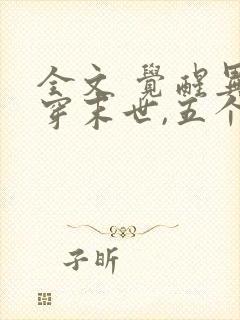 全文 覺醒異
穿末世,五个
子昕